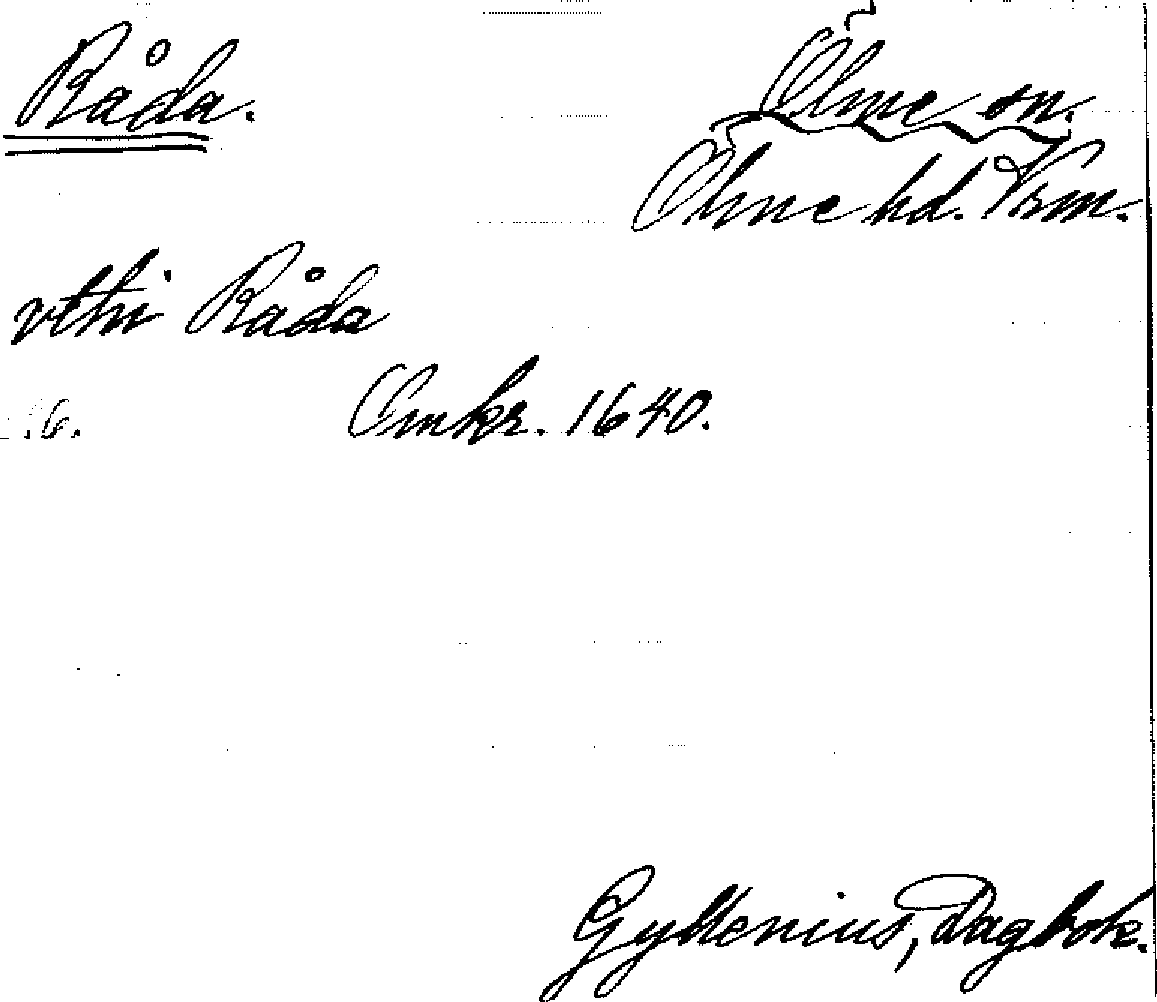 Råda.
Ölme sn.
Ölme hd. Vrm.
vthi Råda
.6. Omkr. 1640.
Gyllenius, Dagbok.